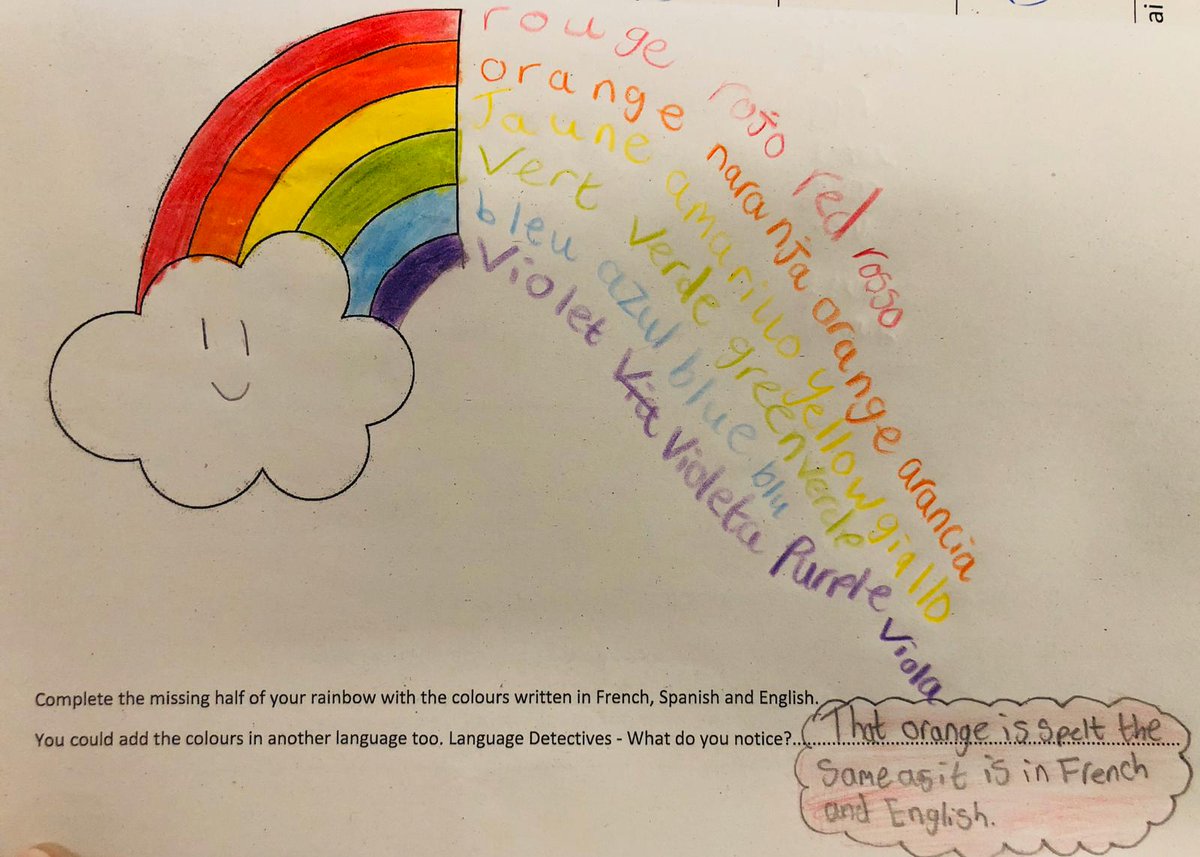 ai
rouge rojo red rosso
orange naranja orange arancia
Jaune amarillo yellow giallo
Vert Verde green verde
bleu azul blue blu
Violet Via Violeta Purple Viola
Complete the missing half of your rainbow with the colours written in French, Spanish and English.
You could add the colours in another language too. Language Detectives - What do you notice?..That orange is spelt the
Same as it is in French
and English.